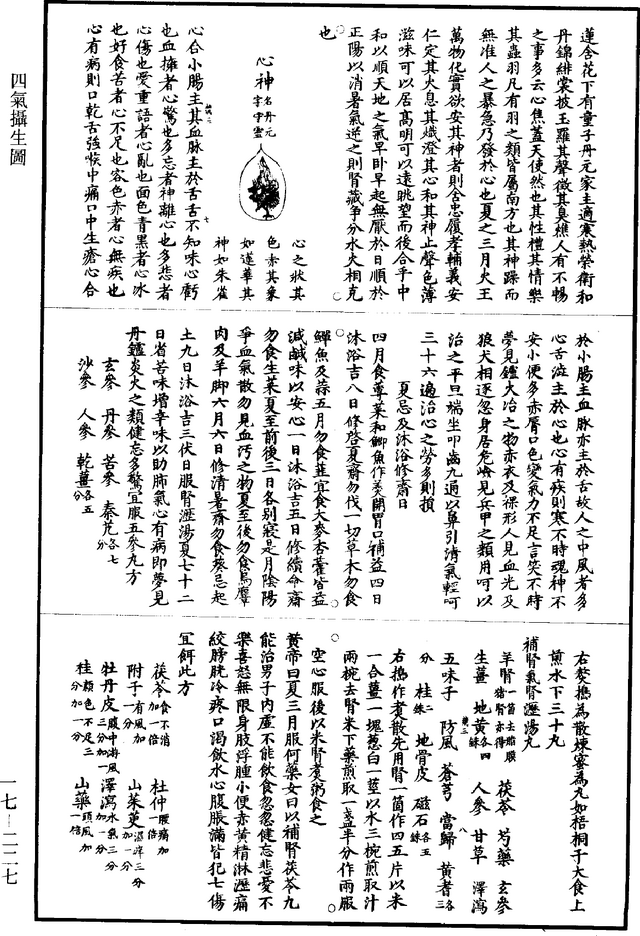 四氣攝生圖
蓮含花下有童子丹元家主適寒熱榮衛和
丹錦緋裳披玉羅其聲徵其臭樵人有不暢
之事多云心焦蓋天使然也其性禮其情樂
其蟲羽凡有羽之類皆屬南方也其神躁而
無准人之暴急乃發於心也夏之三月火王
萬物化實欲安其神者則含忠履孝輔義安
仁定其火息其熾澄其心和其神止聲色薄
滋味可以居高明可以遠眺望而後合乎中
和以順天地之氣早卧早起無厭於日順於
正陽以消暑氣逆之則腎藏爭分水火相克
也
心之狀其
色赤其象
如蓮華其
神如朱雀
心神名丹元字守靈
心合小腸主其血脉主於舌舌不知味心虧
也血擁者心驚也多忘者神離心也多悲者
心傷也愛重語者心亂也面色青黑者心冰
也好食苦者心不足也容色赤者心無疾也
心有病則口乾舌強喉中痛口中生瘡心合
於小腸主血脉亦主於舌故人之中風者多
心舌澁主於心也心有疾則寒不時魂神不
安小便多赤唇口色變氣力不足言笑不時
夢見鑪大冶之物赤衣及裸形人見血光及
狼犬相逐忽身居危喚見兵甲之類用呵以
治之平旦端坐叩齒九通以鼻引清氣輕呵
三十六遍治心之勞多則損
夏忌及沐浴修齋日
四月食蓴菜和鯽魚作羹開胃口補益四日
沐浴吉八日修啓夏齋勿伐一切草木勿食
鱓魚及蒜五月勿食韮宜食大麥杏藿皆益
減鹹味以安心一日沐浴吉五日修續命齋
勿食生菜夏至前後三日各別寢是月陰陽
爭血氣散勿見血汚之物夏至後勿食鴈麞
肉及羊脚六月六日修清暑齋勿食葵忌起
土九日沐浴吉三伏日服腎瀝湯夏七十二
日省苦味增辛味以助肺氣心有病即夢見
丹鑪炎火之類健忘多驚宜服五參丸方
玄參 丹參 苦參 秦艽各七分
沙參 人參 乾薑各五分
右熬擣為散煉蜜為丸如梧桐子大食上
煎水下三十丸
補腎氣腎瀝湯丸
羊腎一箇去脂膜猪腎亦得 茯苓 芍藥 玄參
生薑 地黃各四銖 人參 甘草 澤瀉
五味子 防風 蒼芎 當歸 黃耆各三分
桂二銖 地骨皮 磁石各五銖
右擣作麄散先用腎一箇作四五片以米
一合薑一塊葱白一莖以水三椀煎取汁
兩椀去腎米下藥煎取一盞半分作兩服
空心服後以米腎煑粥食之
黃帝曰夏三月服何藥女曰以補腎茯苓丸
能治男子內虛不能飲食忽忽健忘悲憂不
樂喜怒無限身肢浮腫小便赤黃精淋瀝痛
絞膀胱冷疼口渴飲水心腹脹滿皆犯七傷
宜餌此方
茯苓食不消加一倍 杜仲腰痛加一倍
附子有風加一分 山茱萸濕痒三分加一分
牡丹皮腹中游風三分加一分 澤瀉水氣三分加一分
桂顏色不足三分加一分 山藥頭風加一倍
一七—二二七